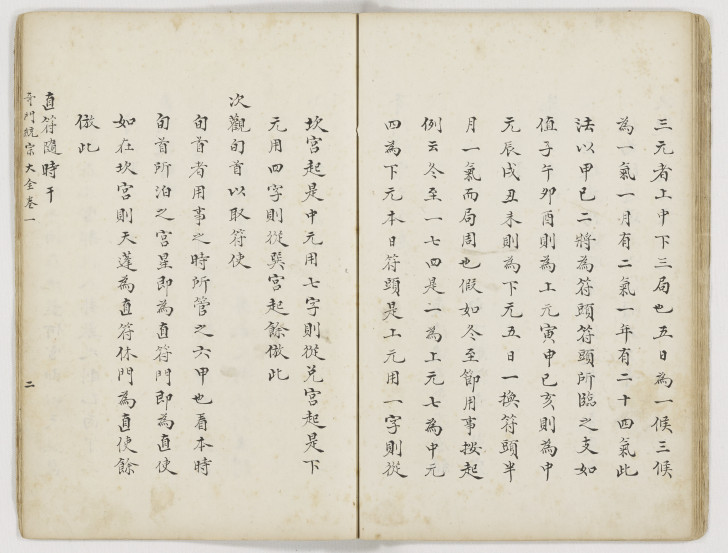 三元者上中下三局也五日為一候三候
為一氣一月有二氣一年有二十四氣此
法以甲己二將為符頭符頭所臨之支如
值子午卯酉則為上元寅申巳亥則為中
元辰戌丑未則為下元五日一換符頭半
月一氣而局周也假如冬至節用事按起
例云冬至一七四是一為上元七為中元
四為下元本日符頭是上元用一字則從
坎宮起是中元用七字則從兌宮起是下
元用四字則從巽宮起餘倣此
次觀旬首以取符使
旬首者用事之時所管之六甲也看本時
旬首所泊之宮星即為直符門即為直使
如在坎宮則天蓬為直符休門為直使餘
倣此
直符隨時干
奇門統宗大全卷一
二